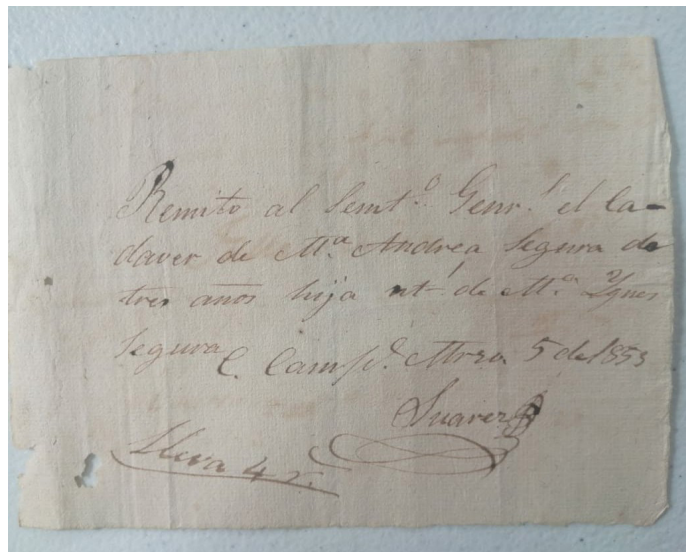 Remito al Semt.º Genr.l el Ca-
daver de M.ª Andrea Segura de
tres años hija nt.l de M.ª Ygnes
Segura C. Camp.º Mrzo 5 de 1853
Suarez
Lleva 4 r.